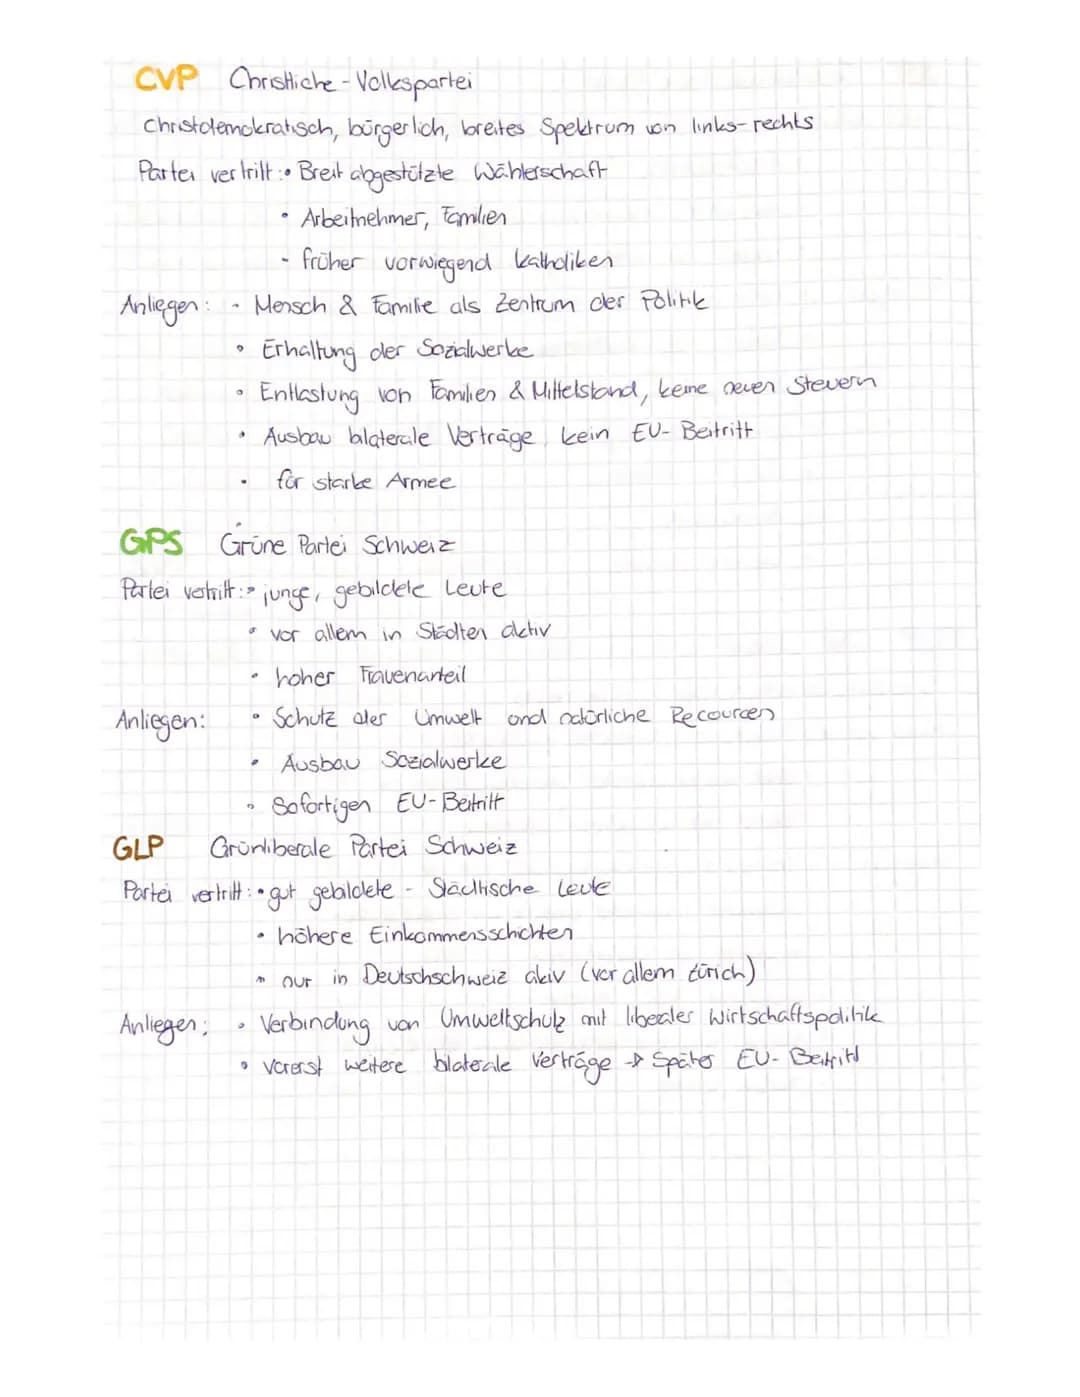 CVP Christliche - Volkspartei
Christdemokratisch, bürgerlich, breites Spektrum von links- rechts
Partei vertritt : • Breit abgestützte Wählerschaft
• Arbeitnehmer, Familien
- früher vorwiegend Katholiken
Anliegen : - Mensch & Familie als Zentrum der Politik
• Erhaltung der Sozialwerke
• Entlastung von Familien & Mittelstand, keine neuen Steuern
• Ausbau bilaterale Verträge, kein EU- Beitritt
• für starke Armee
GPS Grüne Partei Schweiz
Partei vertritt : • junge, gebildete Leute
• vor allem in Städten aktiv
• hoher Frauenanteil
Anliegen: • Schutz der Umwelt und natürliche Recourcen
• Ausbau Sozialwerke
• Sofortigen EU- Beitritt
GLP Grünliberale Partei Schweiz
Partei vertritt : • gut gebildete - Städtische Leute
• höhere Einkommensschichten
• nur in Deutschschweiz aktiv (vor allem Zürich)
Anliegen ; • Verbindung von Umweltschutz mit liberaler Wirtschaftspolitik
• vorerst weitere bilaterale Verträge → Später EU- Beitritt